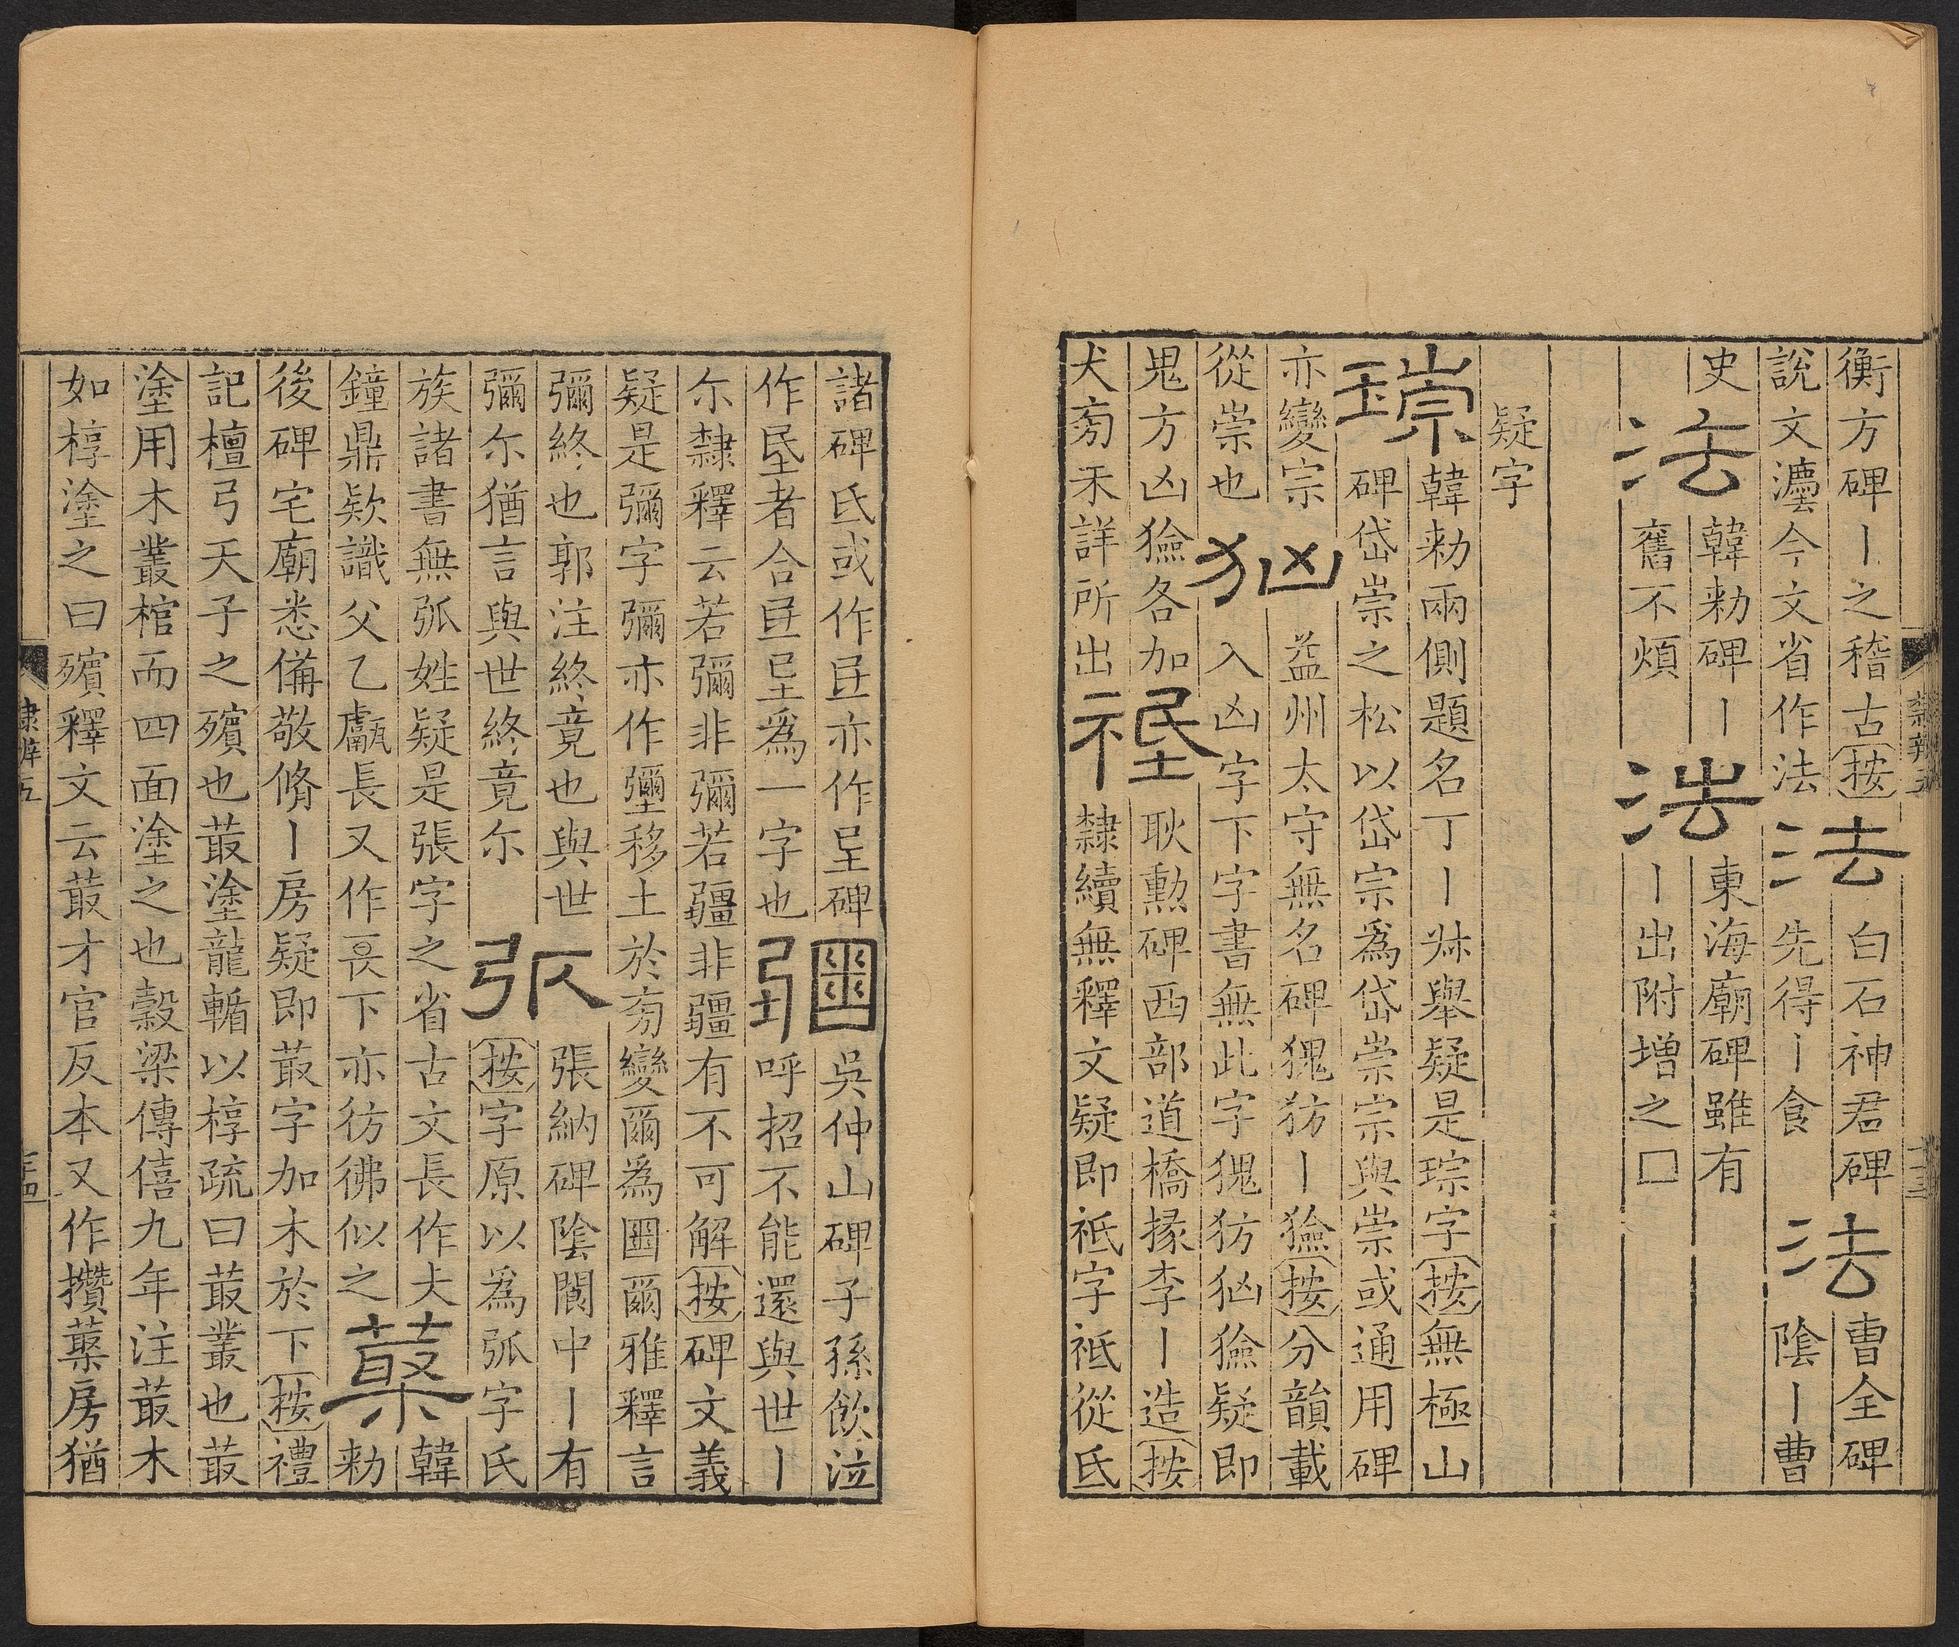 衡方碑丨之稽古按
說文灋今文省作法
法
白石神君碑
先得丨食
法
曹全碑
陰丨曹
史
法
韓勑碑丨
舊不煩
法
東海廟碑雖有
丨出附增之囗
疑字
韓勑兩側題名丁丨叔舉疑是琮字按無極山
碑岱崇之松以岱宗爲岱崇宗與崇或通用碑
亦變宗
從崇也
㐫
益州太守無名碑猑犺丨獫按分韻載
入凶字下字書無此字犺獫疑即
鬼方凶獫各加
犬㫄未詳所出
耿勳碑西部道橋掾李丨造按
隸續無釋文疑即祗字祗從氐
諸碑氐或作亦作碑
作者合爲一字也
圞
吳仲山碑子孫飲泣
呼招不能還與世丨
尒隸釋云若彌非彌若疆非疆有不可解按碑文義
疑是彌字彌亦作壐移土於㫄變爾爲圞爾雅釋言
彌終也郭注終竟也與世
彌尒猶言與世終竟尒
張納碑陰閬中丨有
按字原以爲弧字氏
族諸書無弧姓疑是張字之省古文長作夫
鐘鼎欵識父乙甗長又作㠭下亦彷彿似之
韓
勑
後碑宅廟悉備敬脩丨房疑即菆字加木於下按禮
記檀弓天子之殯也菆塗龍輴以椁疏曰菆叢也菆
塗用木叢棺而四面塗之也穀梁傳僖九年注菆木
如椁塗之曰殯釋文云菆才官反本又作攢藂房猶
隸辨五